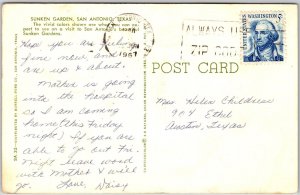 SUNKEN GARDEN, SAN ANTONIO, TEXAS
The vivid colors shown are
pect to see on a visit to San Antonio's
Sunken Gardens
1967
ALWAYS USE
ZIP CODE
UNITED STATES
WASHINGTON
POST CARD
Hope you are feeling
fine now and are
up & about.
Mother is going
into the hospital
as I am coming
home (this Friday
night) If you are
able to go out Fri.
night leave word
with Mother & will
go. Love, Daisy
Mrs Helen Childress
904 Ethel
Austin, Texas